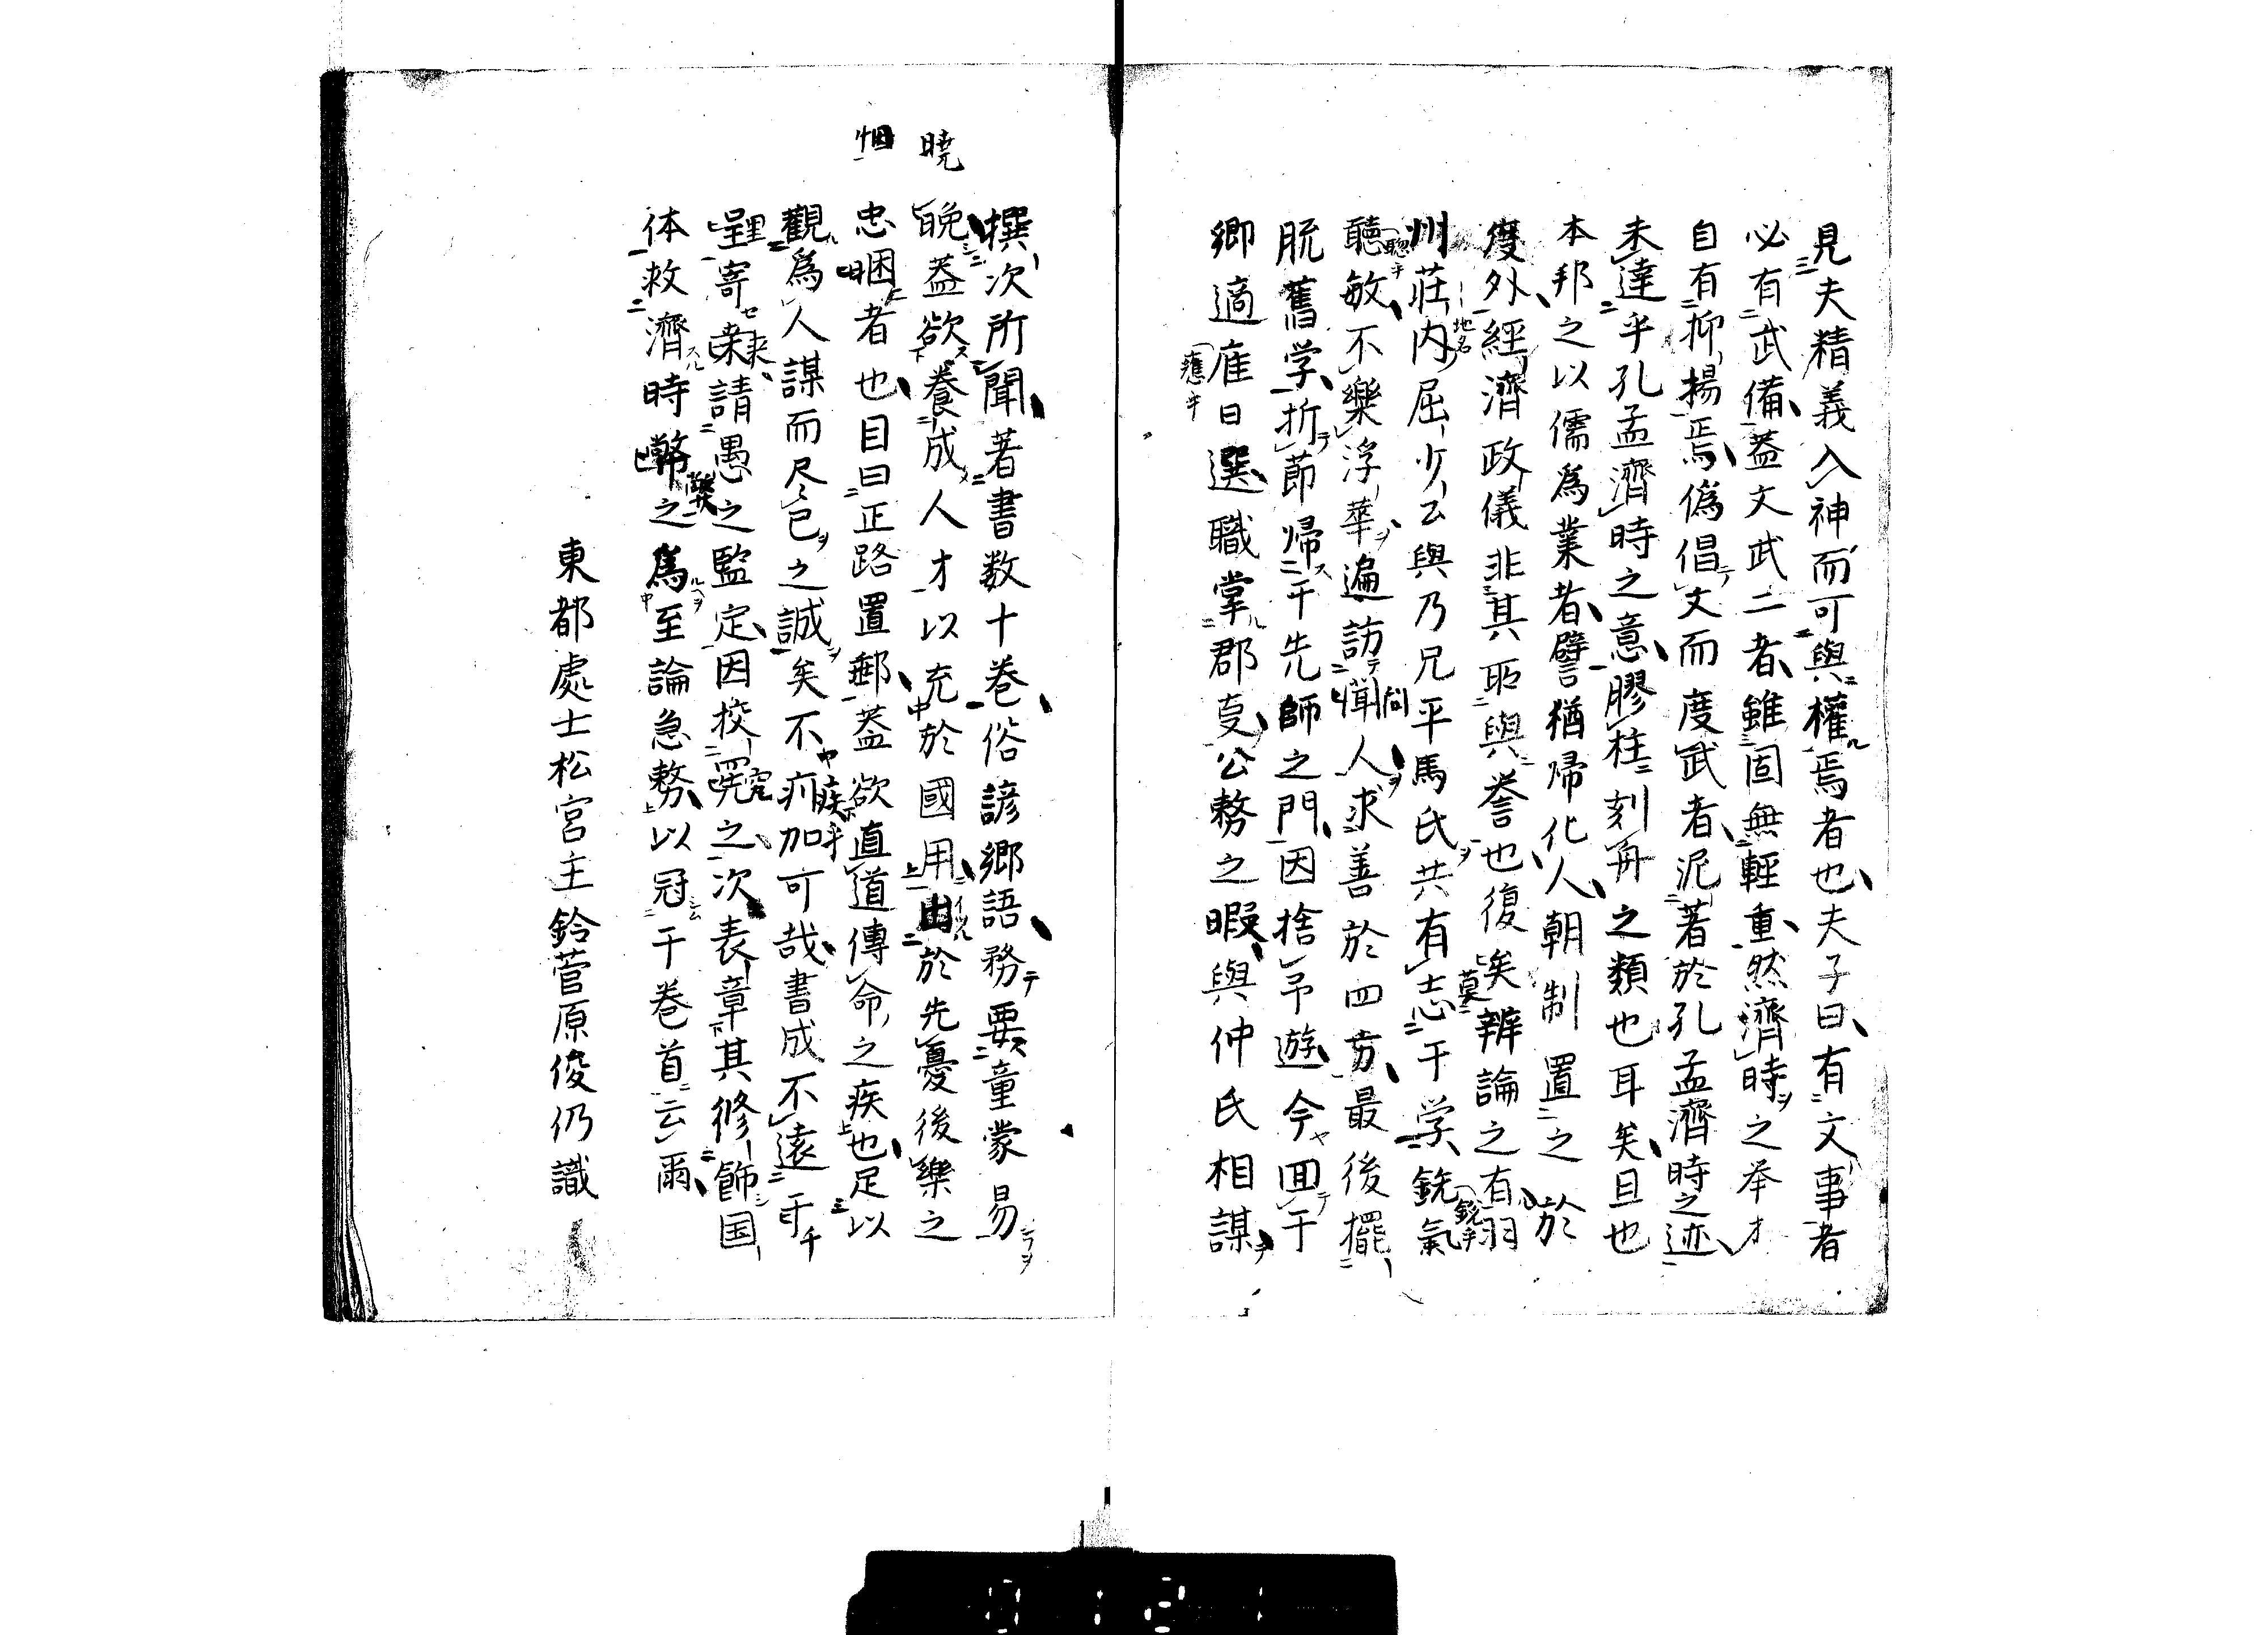 見夫精義入神而可與權焉者也夫子曰有文事者
必有武備蓋文武二者雖固無輕重然濟時之举才
自有抑揚焉偽倡文而度武者泥著於孔孟濟時之迹
未達乎孔孟濟時之意膠柱刻舟之類也耳矣且也
本邦之以儒為業者譬猶帰化人朝制置之於
度外經濟政儀非其所與誉也復矣辨論之有羽
州莊内屈少公與乃兄平馬氏共有志于学銃氣
聽敏不樂浮華遍訪聞人求善於四方最後擺
脱舊学折節帰于先師之門因捨予遊今回于
卿適隺日選職掌郡吏公務之暇與仲氏相謀
撰次所聞著書数十巻俗諺鄉語務要童蒙易
晚蓋欲養成人才以充於國用由於先憂後樂之
忠悃者也目曰正路置郵蓋欲直道傳命之疾也足以
觀為人謀而尽己之誠矣不加可哉書成不遠千
里寄来請愚之監定因挍究之次表章其修飾国
体救濟時弊之為至論急務以冠于巻首云爾
東都處士松宮主鈴菅原俊仍識
曉
悃